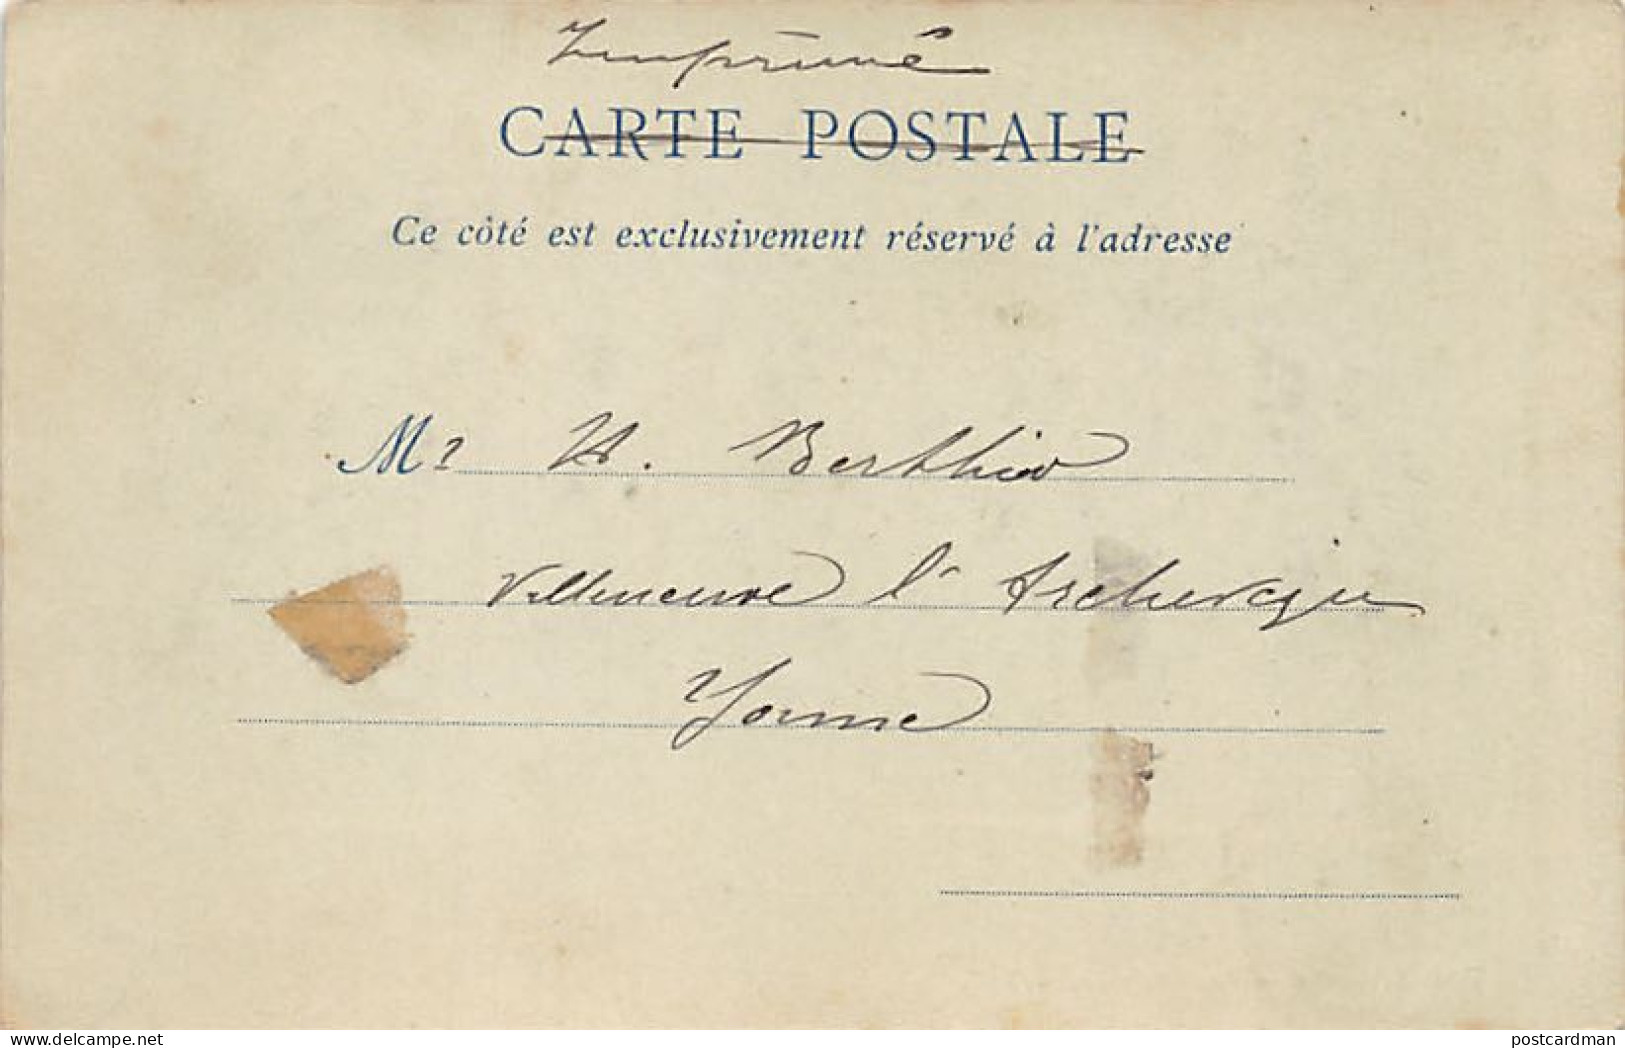 Imprimé
CARTE POSTALE
Ce côté est exclusivement réservé à l'adresse
Mr H. Berthier
Villeneuve l'Archevêque
Yonne
delcampe.net
postcardman